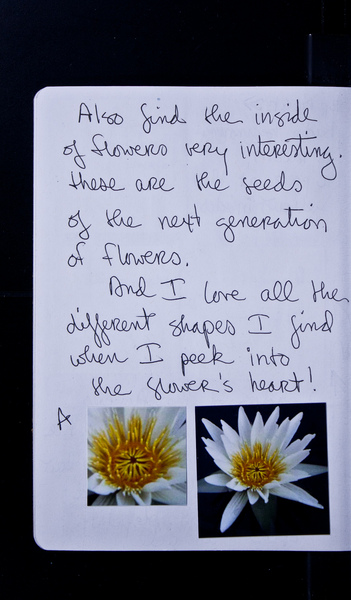 Also find the inside
of flowers very interesting.
these are the seeds
of the next generation
of flowers.
And I love all the
different shapes I find
when I peek into
the flower's heart!
A